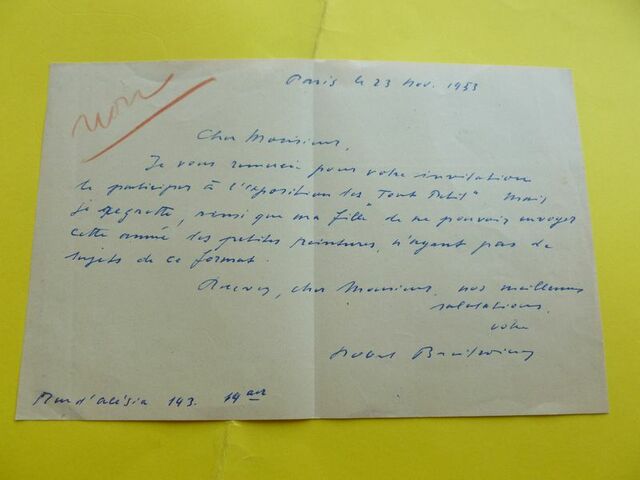 non
Paris le 23 Nov. 1953
Cher Monsieur,
Je vous remercie pour votre invitation
de participer à l'exposition des "Tout Petit" Mais
je regrette, ainsi que ma fille de ne pouvoir envoyer
cette année des petites peintures, n'ayant pas de
sujets de ce format.
Recevez, cher Monsieur, nos meilleures
salutations.
votre
Rue d'Alésia 143. 14